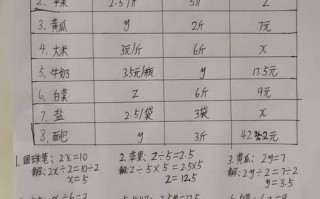 2. 苹果 2.5/斤 5斤 z
3. 黄瓜 y 2斤 7元
4. 大米 3元/斤 6斤 x
5. 牛奶 3.5元/瓶 y 17.5元
6. 白菜 z 6斤 9元
7. 盐 2.5/袋 3袋 x
8. y 3斤 42元
1. 圆珠笔: 2x=10 2. 苹果: z÷5=2.5 3. 黄瓜: 2y=7
解: 2x÷2=10÷2 解: z÷5×5=2.5×5 解: 2y÷2=7÷2
x=5 z=12.5 y=3.5